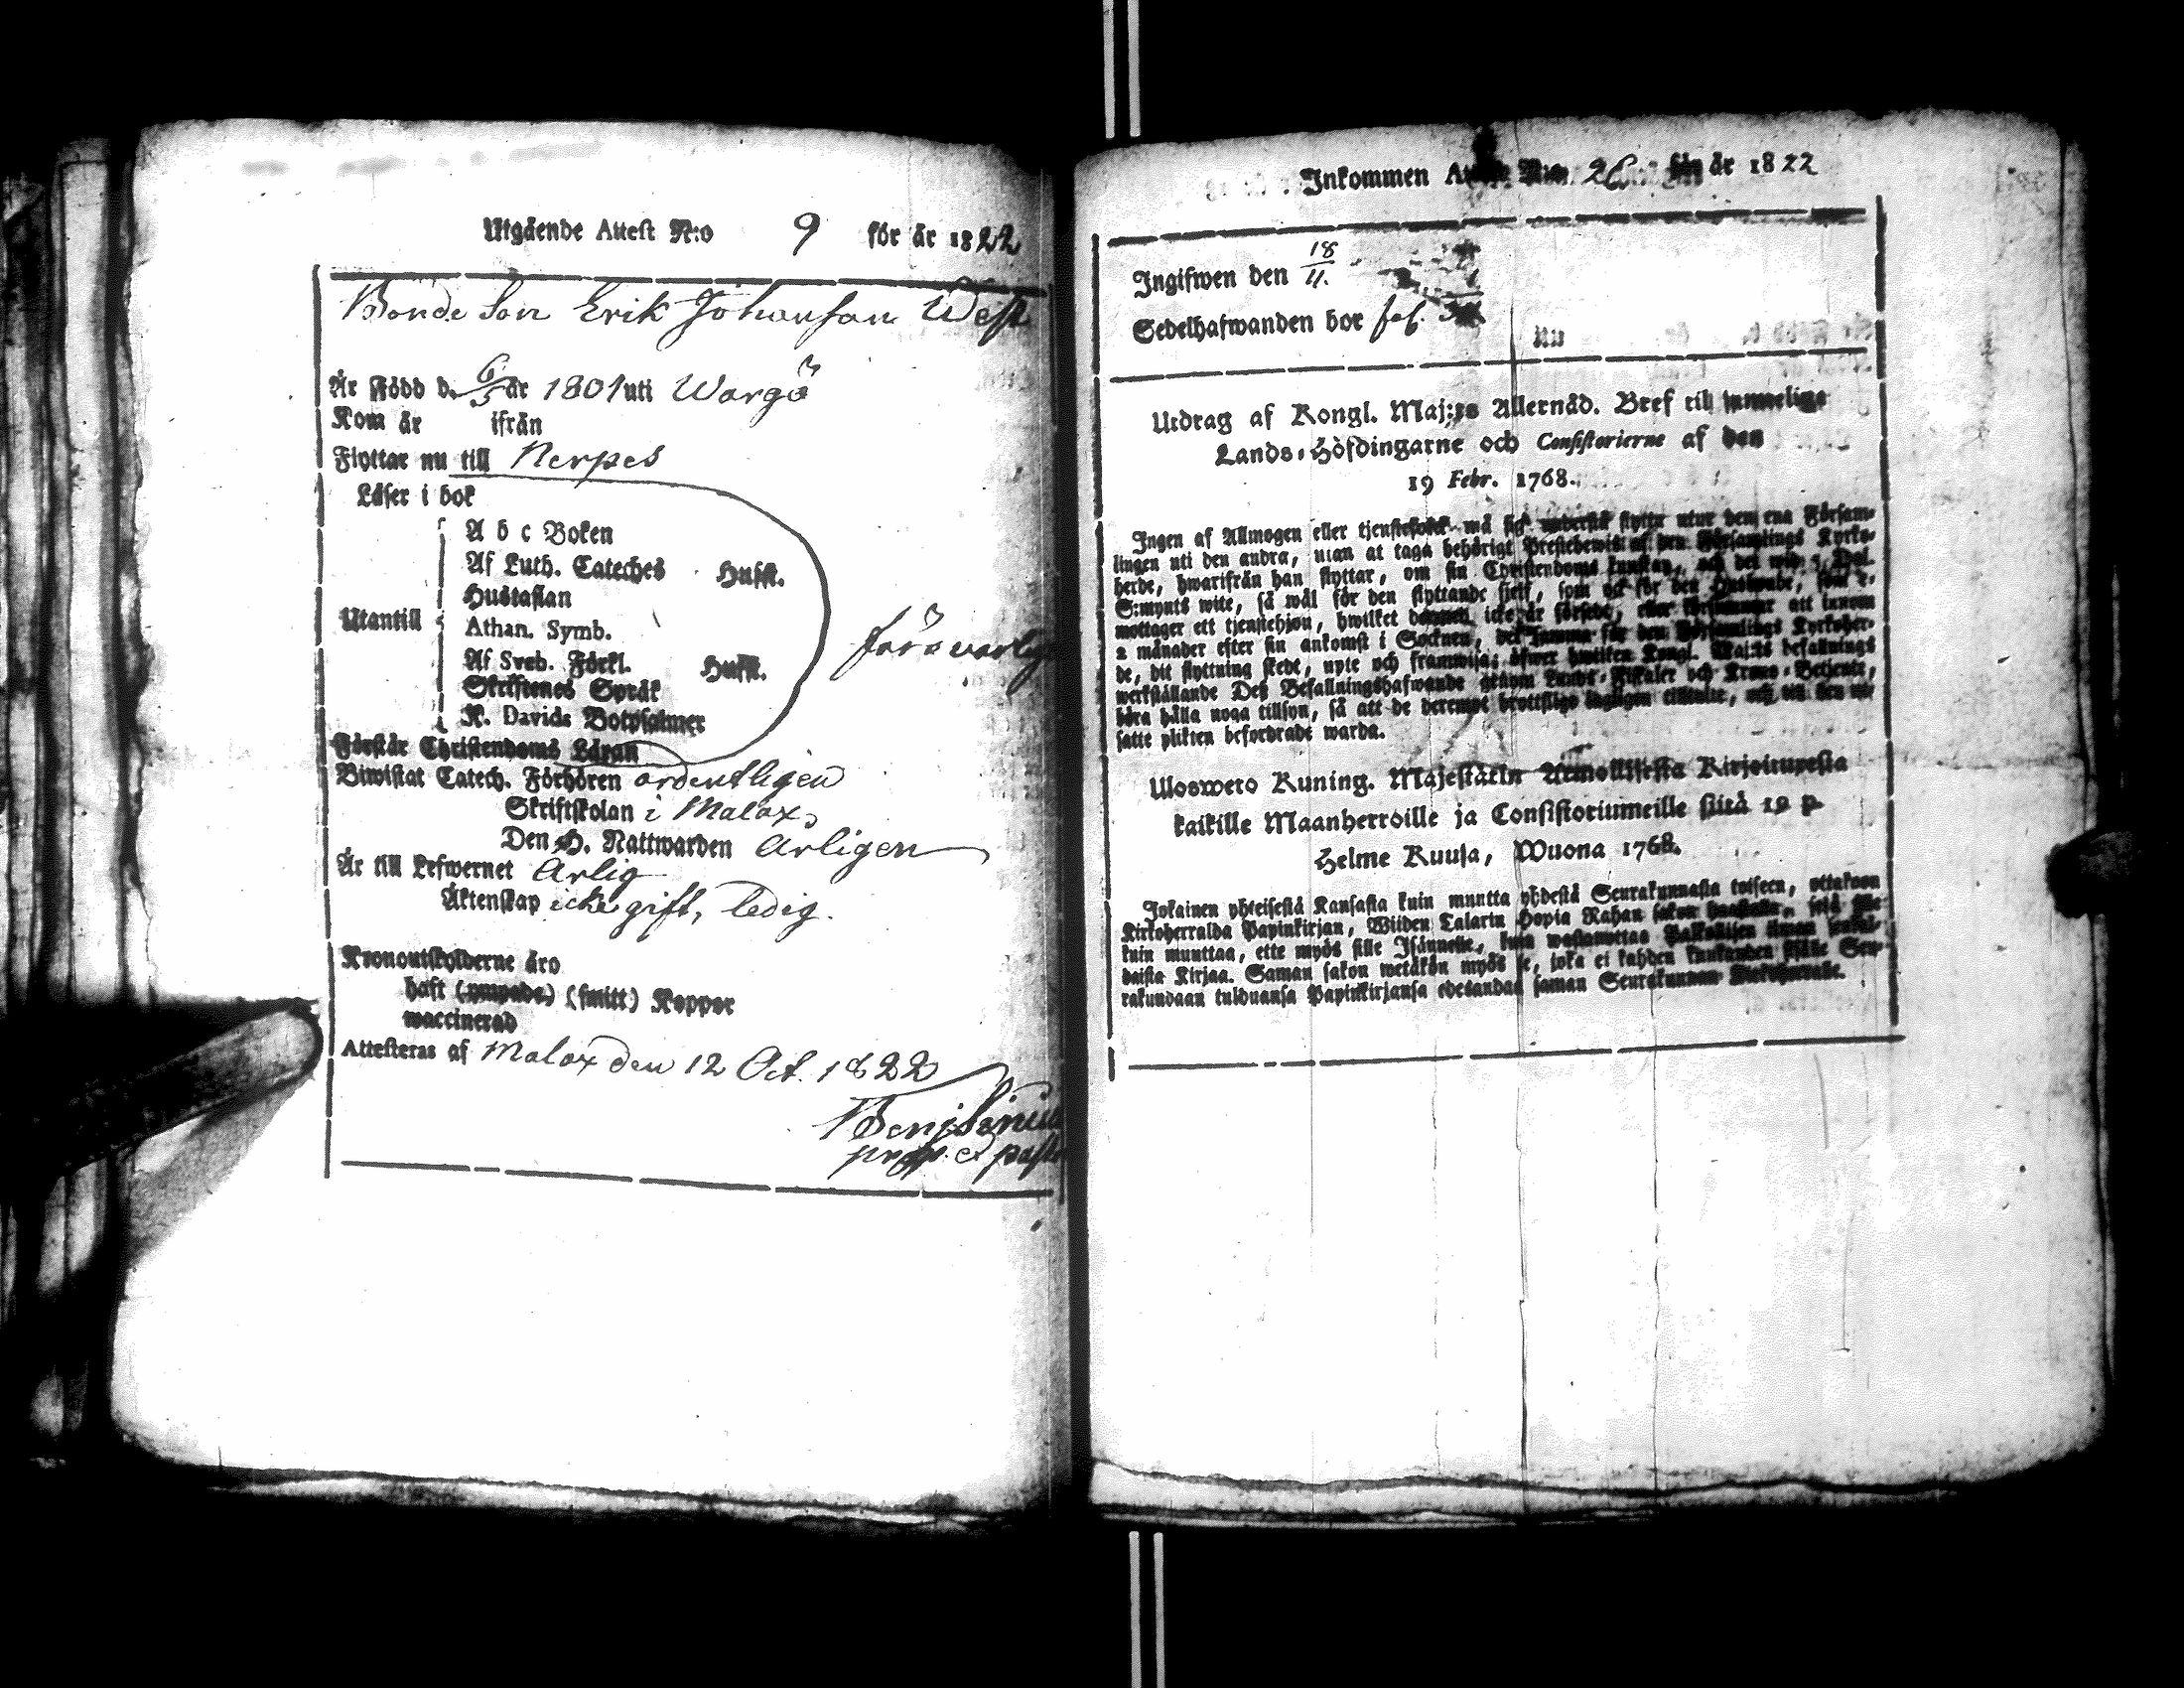 Utgående Attest N:o 9 för år 1822
Bonde Son Erik Johansson West
Är Född d. 6/5 år 1801 uti Wargö
Kom år ifrån
Flyttar nu till Nerpes
Läser i bok
A b c Boken
Af Luth. Cateches Husst.
Hustaflan
Utantill
Athan. Symb.
Af Sveb. Förkl. Husst.
Skriftenes Språk
K. Davids Botpsalmer
försvarlig
Förstår Christendoms Läran
Biwistat Catech. Förhören ordentligen
Skriftskolan i Malax,
Den H. Nattwarden Årligen
Är till Lefwernet Ärlig
Äktenskap icke gift, ledig.
Kronoutskylderne äro
haft (ympade) (smitt) Koppor
waccinerad
Attesteras af Malax den 12 Oct. 1822
Benj
prop. et past
Inkommen N:o 26 för år 1822
Ingifwen den 18/11.
Sedelhafwanden bor fol.
Utdrag af Kongl. Maj:ts Allernåd. Bref till samtelige
Lands-Höfdingarne och Consistorierne af den
19 Febr. 1768.
Ingen af Allmogen eller tjenstefolck må sig understå flytta utur den ena Försam-
lingen uti den andra, utan at taga behörigt Prestebewis af den Församlings Kyrko-
herde, hwarifrån han flyttar, om sin Christendoms kunskap, och det wid 5. Dal.
S:mynts wite, så wäl för den flyttande sjelf, som ock för den Husbonde, som e.
mottager ett tjenstehjon, hwilket dermed icke är försedt, eller försummar att innom
2 månader efter sin ankomst i Socknen, det samma för den Församlings Kyrkoher-
de, dit flyttning skedt, upte och framwisa; öfwer hwilken Kongl. Maj:ts befallnings
werkställande Des Befallningshafwande genom Lands-Fiskaler och Krono-Betjente,
böra hålla noga tillsyn, så att de deremot brottslige lagligen tilltalte, och till den ut-
satte plikten befordrade warda.
Ulosweto Kuning. Majestätin Armollisesta Kirjoituxesta
kaikille Maanherroille ja Consistoriumeille siitä 19 p.
Helme Kuusa, Wuona 1768.
Jokainen yhteisestä Kansasta kuin muutta yhdestä Seurakunnasta toiseen, ottakoon
Kirkoherralda Papinkirjan, Wiiden Talarin Hopia Rahan sakon haastolla, sekä sille
kuin muuttaa, ette myös sille Isännelle, kuin wastanottaa Palkollisen ilman
daista Kirjaa. Saman sakon wetäkön myös se, joka ei kahden kuukauden sisälle Seu-
rakundaan tulduansa Papinkirjansa edesandaa saman Seurakunnan Kirkoherralle.